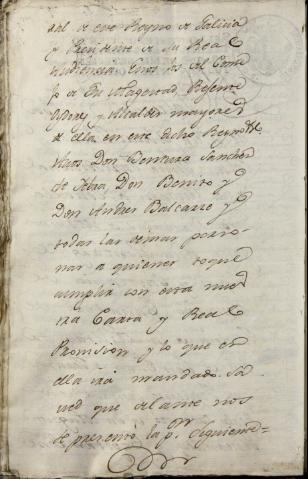 ral de este Reyno de Galicia
y Presidente de su Real
Audiencia, Enos los del Conse
jo de Su Magestad Rexente
y Alcaldes mayores
de ella en este dicho Reyno
Vaos Don Bentura Sanchez
de Don Benito y
Don Andres Balcarze y
todas las demas perso-
nas a quienes toque
cumplir con esta nues
tra Carta y Real
Provision y lo que en
ella ira mandado. Sa
ved que delante nos
se presentó la p.on siguiente=